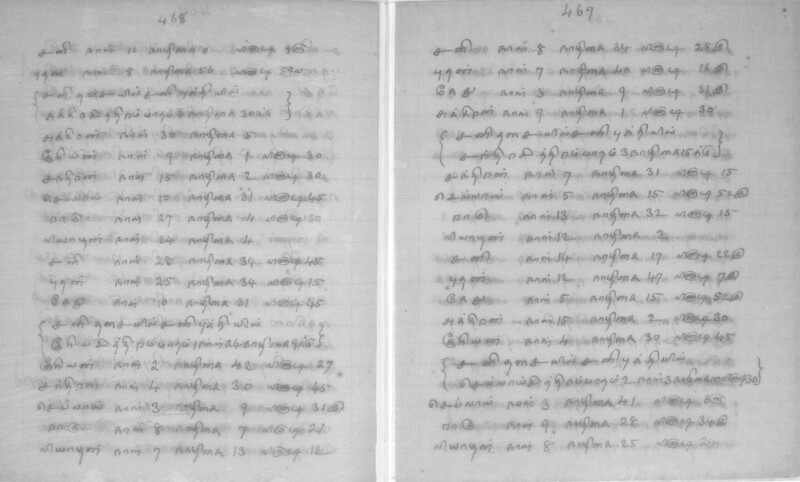 468
சனி நாள் 10 நாழிகை 0 வினாடி 9
புதன் நாள் 8 நாழிகை 56 வினாடி
சனி தசையில் சனி புத்தியில்
சுக்கிரன் நாள் 30 நாழிகை 5
சூரியன் நாள் 9 நாழிகை 1 வினாடி 30
சந்திரன் நாள் 15 நாழிகை 2 வினாடி 30
செவ்வாய் நாள் 10 நாழிகை 31 வினாடி 45
ராகு நாள் 27 நாழிகை 4 வினாடி 30
வியாழன் நாள் 24 நாழிகை 4
சனி நாள் 28 நாழிகை 34 வினாடி 45
புதன் நாள் 25 நாழிகை 34 வினாடி 15
கேது நாள் 10 நாழிகை 31 வினாடி 45
சனி தசையில் சனி புத்தியில்
சூரியன் நாள் 2 நாழிகை 42 வினாடி 27
சந்திரன் நாள் 4 நாழிகை 30 வினாடி 45
செவ்வாய் நாள் 3 நாழிகை 9 வினாடி 31
ராகு நாள் 8 நாழிகை 7 வினாடி 21
வியாழன் நாள் 7 நாழிகை 13 வினாடி 12
469
சனி நாள் 8 நாழிகை 34 வினாடி 25
புதன் நாள் 7 நாழிகை 40 வினாடி 16
கேது நாள் 3 நாழிகை 9 வினாடி 31
சுக்கிரன் நாள் 9 நாழிகை 1 வினாடி 30
சனி தசையில் சனி புத்தியில்
சந்திரன் நாள் 7 நாழிகை 31 வினாடி 15
செவ்வாய் நாள் 5 நாழிகை 15 வினாடி 52
ராகு நாள் 13 நாழிகை 32 வினாடி 15
வியாழன் நாள் 12 நாழிகை 2
சனி நாள் 14 நாழிகை 17 வினாடி 22
புதன் நாள் 12 நாழிகை 47 வினாடி 7
கேது நாள் 5 நாழிகை 15 வினாடி 52
சுக்கிரன் நாள் 15 நாழிகை 2 வினாடி 30
சூரியன் நாள் 4 நாழிகை 30 வினாடி 45
சனி தசையில் சனி புத்தியில்
செவ்வாய் நாள் 3 நாழிகை 41 வினாடி 6
ராகு நாள் 9 நாழிகை 28 வினாடி 34
வியாழன் நாள் 8 நாழிகை 25 வினாடி 24